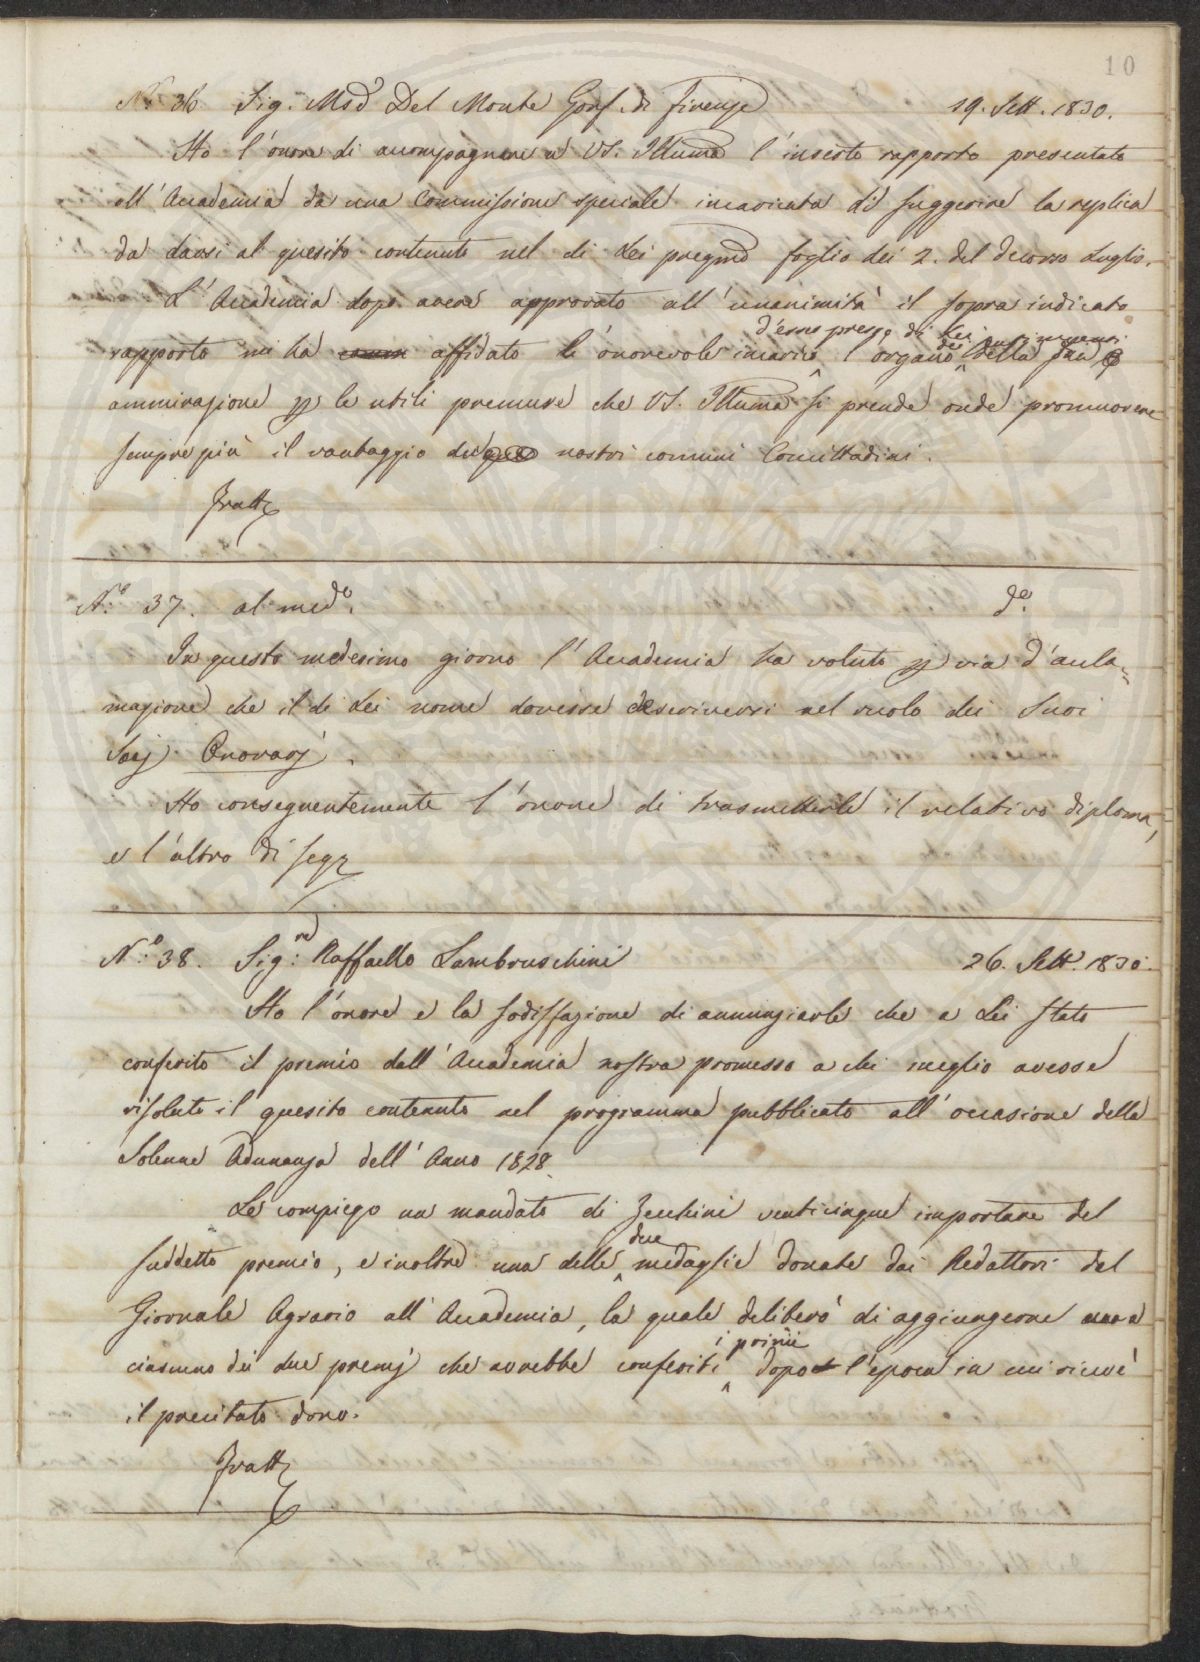 10
N.º 36 Sig. Mod Del Monte Gonf. di Firenze 19. Sett. 1830.
Ho l'onore di accompagnare a VS. Illuma l'inserto rapporto presentato
all'Accademia da una Commissione speciale incaricata di suggerire la replica
da darsi al quesito contenuto nel di Lei pregmo foglio dei 2. del decorso Luglio.
L'Accademia dopo avere approvato all'unanimità il sopra indicato
d'esser presso di Lei
rapporto mi ha affidato l'onorevole incarico l'organo dei sentimenti della sua
ammirazione p le utili premure che VS. Illuma si prende onde promuovere
sempre più il vantaggio dei nostri comuni Concittadini.
Fratt
N.º 37. al medº. dº.
In questo medesimo giorno l'Accademia ha voluto p via d'acla=
mazione che il di Lei nome dovesse descriversi nel ruolo dei Suoi
Socj Onorarj.
Ho conseguentemente l'onore di trasmetterle il relativo diploma,
e l'altro di segr
N.º 38. Sig.re Raffaello Lambruschini 26. Sett. 1830.
Ho l'onore e la sodisfazione di annunziarle che a Lei stato
conferito il premio dall'Accademia nostra promesso a chi meglio avesse
risoluto il quesito contenuto nel programma pubblicato all'occasione della
Solenne Adunanza dell'Anno 1828.
Le compiego un mandato di Zecchini venticinque importare del
suddetto premio, e inoltre una delle due medaglie donate dai Redattori del
Giornale Agrario all'Accademia, la quale deliberò di aggiungerne una a
ciascuno dei due premj che avrebbe conferiti i primi dopo l'epoca in cui ricevè
il precitato dono.
Fratt